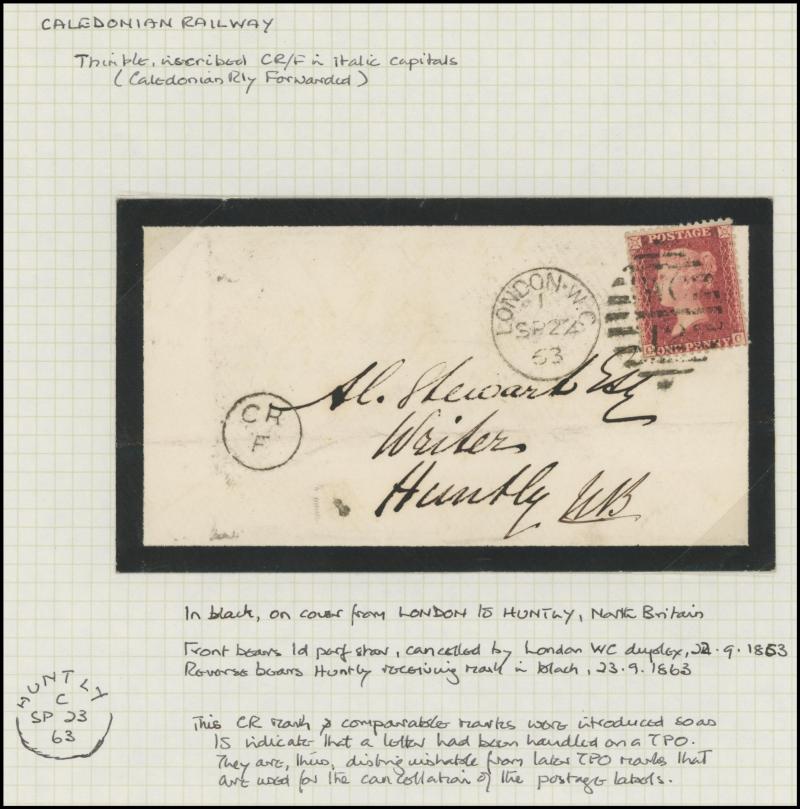 CALEDONIAN RAILWAY
Thimble, inscribed CR/F in italic capitals
(Caledonian Rly Forwarded)
POSTAGE
LONDON·W.C
1
SP 22
63
C ONE PENNY G
CR
F
Al. Stewart Esq
Writer
Huntly NB
In black, on cover from LONDON to HUNTLY, North Britain
Front bears 1d perf star, cancelled by London WC duplex, 22.9.1863
Reverse bears Huntly receiving mark in black, 23.9.1863
HUNTLY
C
SP 23
63
This CR mark & comparable marks were introduced so as
to indicate that a letter had been handled on a TPO.
They are, thus, distinguishable from later TPO marks that
are used for the cancellation of the postage labels.